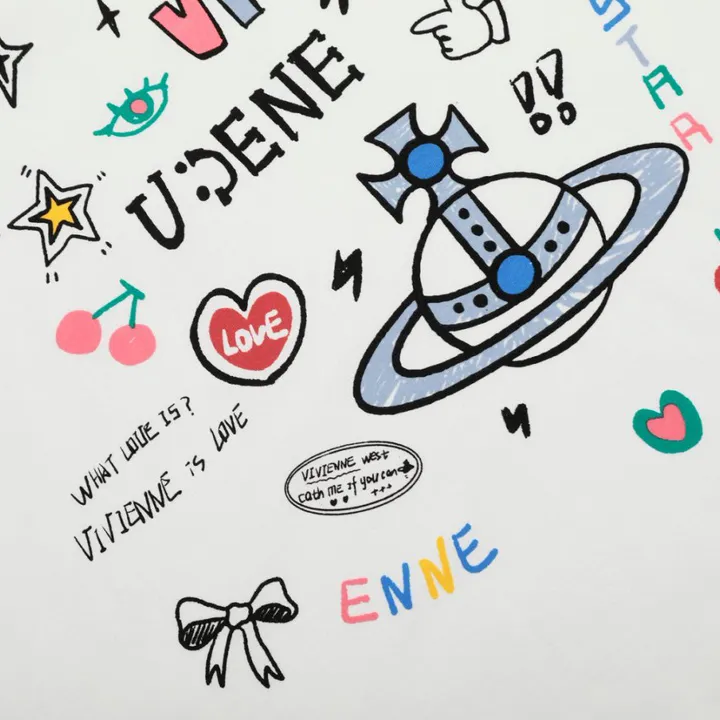 VI
U:DENE
!!
STAR
LOVE
WHAT LOVE IS?
VIVIENNE is LOVE
VIVIENNE west
cath ME if you can
+++
ENNE